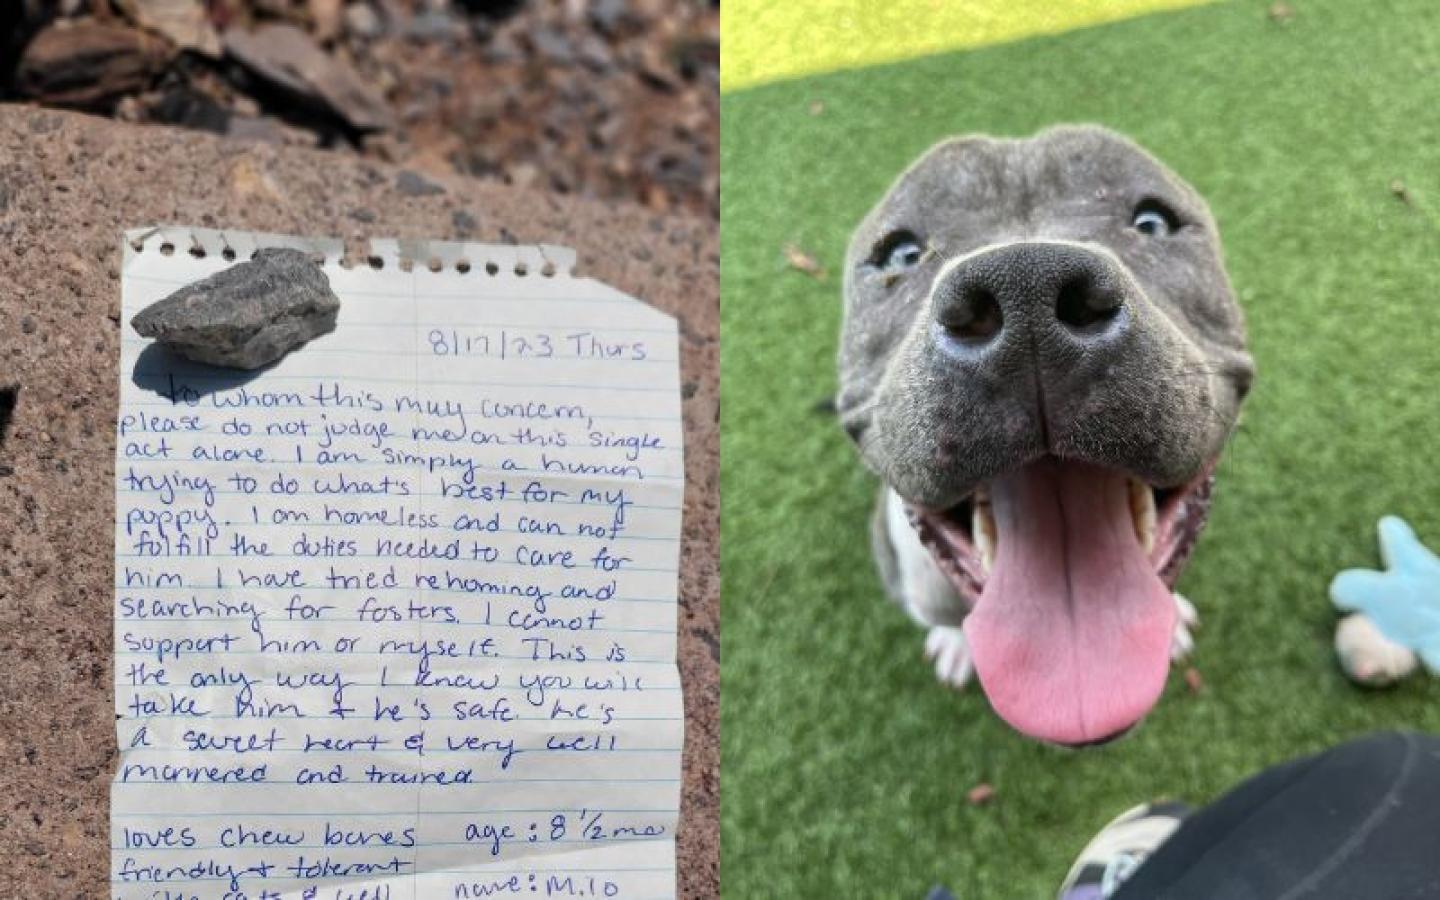 8/17/23 Thurs
to whom this may concern,
please do not judge me on this single
act alone. I am simply a human
trying to do what's best for my
puppy. I am homeless and can not
fulfill the duties needed to care for
him. I have tried rehoming and
searching for fosters. I cannot
support him or myself. This is
the only way I know you will
take him & he's safe. he's
a sweet heart & very well
mannered and trained
loves chew bones age: 8 1/2 mo
friendly & tolerant
cats & well name: Milo